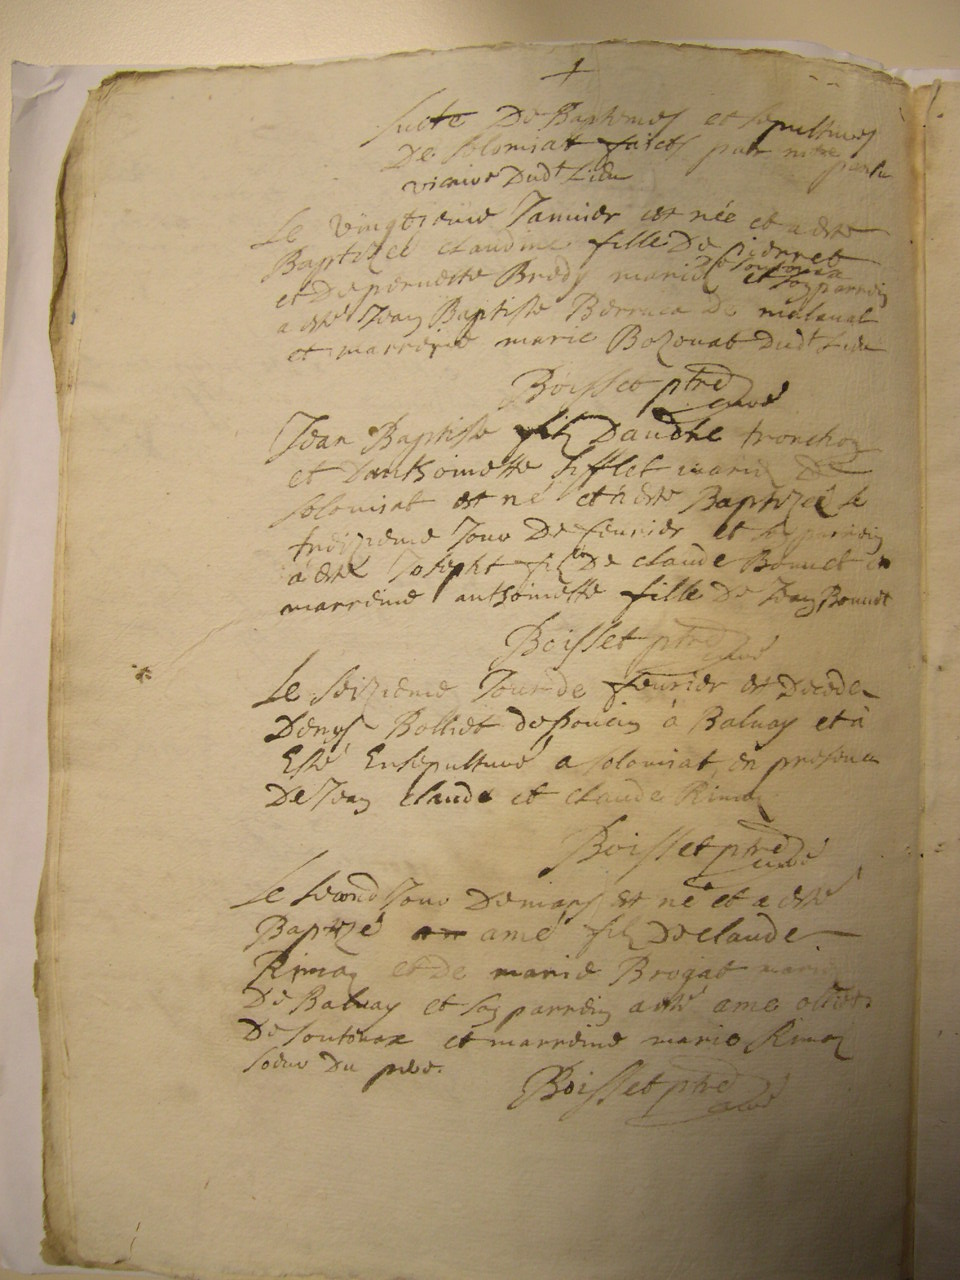 +
Suite De Baptemes et sepultures
De Solomiat faicts par
vicaire Dudt Lieu
Le vingtieme Janvier est née et a esté
Baptizée claudine fille De pierre
et De pernette Brody mariés
De Soutonax et son parrein
a esté Jean Baptiste Berraca De
et marreine marie Bozonat Dudt Lieu
Boisset ptre
curé
Jean Baptiste filz Dandre tronchon
et Danthoinette Sifflet mariés De
Solomiat est né et à esté Baptizé Le
treizieme Jour De fevrier et son parrein
à esté Joseph filz De claude Bonnet et
marreine anthoinette fille De Jean Bonnet
Boisset ptre
curé
Le seizieme Jour de fevrier est Decedé
Denys Bolliet à Balvay et à
Esté Ensepulturé a Solomiat en presence
De Jean claude et claude Rimoz
Boisset ptre
curé
Le second Jour De mars est né et a esté
Baptizé amé filz De claude
Rimoz et de marie Brogat mariés
De Balvay et son parrein a esté amé
De Soutonax et marreine marie Rimoz
soeur Du pere.
Boisset ptre
curé